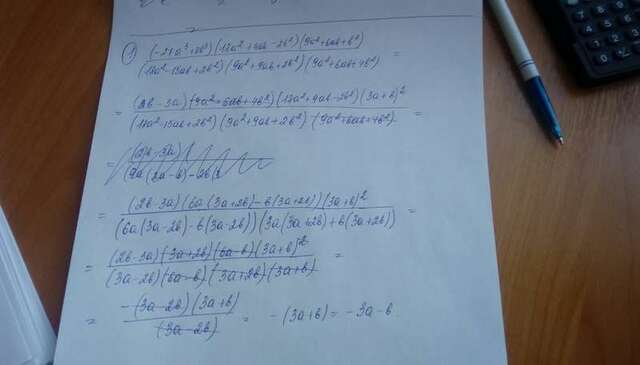 1) (-27a³+8b³)(18a²+9ab-2b²)(9a²+6ab+b²) / (18a²-15ab+2b²)(9a²+9ab+2b²)(9a²+6ab+4b²) =
= (2b-3a)(9a²+6ab+4b²)(18a²+9ab-2b²)(3a+b)² / (18a²-15ab+2b²)(9a²+9ab+2b²)(9a²+6ab+4b²) =
=
= (2b-3a)(6a(3a+2b)-b(3a+2b))(3a+b)² / (6a(3a-2b)-b(3a-2b))(3a(3a+2b)+b(3a+2b)) =
= (2b-3a)(3a+2b)(6a-b)(3a+b)² / (3a-2b)(6a-b)(3a+2b)(3a+b) =
= -(3a-2b)(3a+b) / (3a-2b) = -(3a+b) = -3a-b